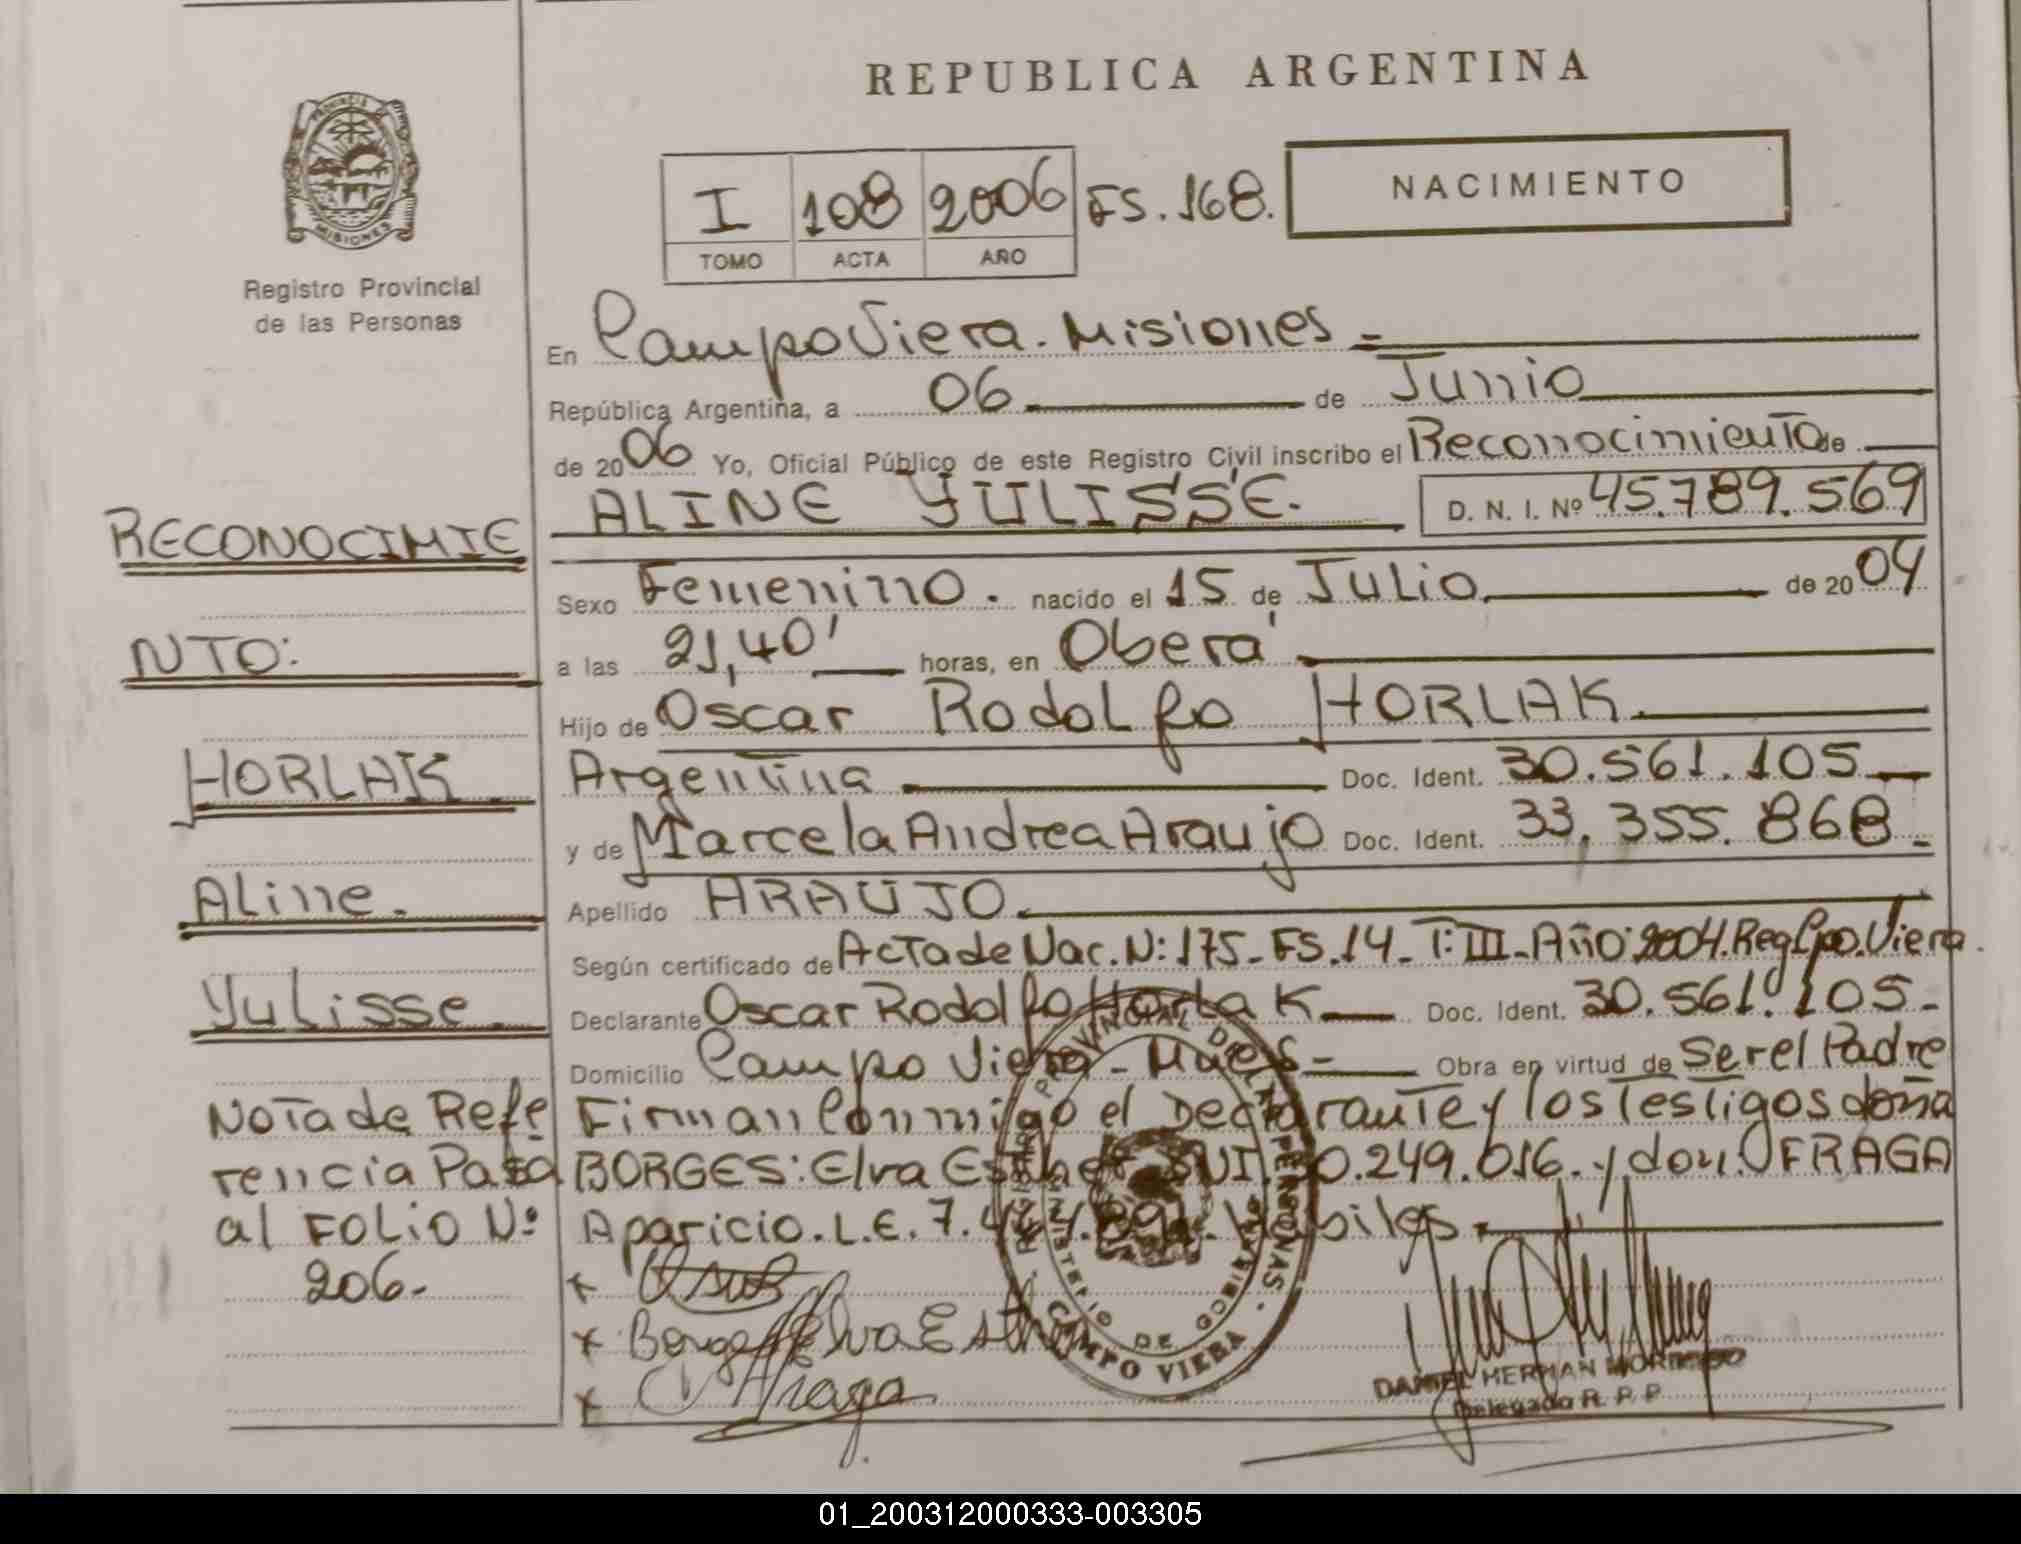 REPUBLICA ARGENTINA
PROVINCIA DE
MISIONES
Registro Provincial
de las Personas
I 108 2006 FS.168.
TOMO ACTA AÑO
NACIMIENTO
En Campo Viera. Misiones
República Argentina, a 06 de Junio
de 2006 Yo, Oficial Público de este Registro Civil inscribo el Reconocimiento de
ALINE YULISSE. D. N. I. Nº 45.789.569
Sexo Femenino. nacido el 15 de Julio de 2004
a las 21,40' horas, en Oberá
Hijo de Oscar Rodolfo HORLAK
Argentina Doc. Ident. 30.561.105
y de Marcela Andrea Araujo Doc. Ident. 33,355.868
Apellido ARAUJO.
Según certificado de Acta de Nac. N: 175-FS.14-T:III-Año:2004.Reg Cpo.Viera.
Declarante Oscar Rodolfo Horlak Doc. Ident. 30.561.105-
Domicilio Campo Viera - Obra en virtud de Ser el Padre
Firman Conmigo el Declarante y los Testigos doña
BORGES: Elva Esther .249.016. y don. FRAGA
Aparicio. L.E. 7. Hábiles.
RECONOCIMIE
NTO:
HORLAK
Aline.
Yulisse
Nota de Refe
rencia Pasa
al FOLIO Nº
206.
Borges Elva Esther
Fraga
REGISTRO PROVINCIAL DE LAS PERSONAS
MINISTERIO DE GOBIERNO
CAMPO VIERA
DANIEL HERNAN
Delegado R. P. P
01_200312000333-003305